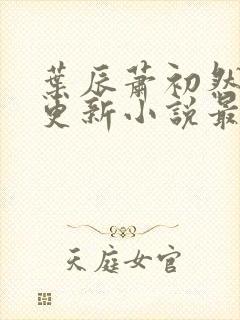 葉辰蕭初然
更新小說最
天庭女官